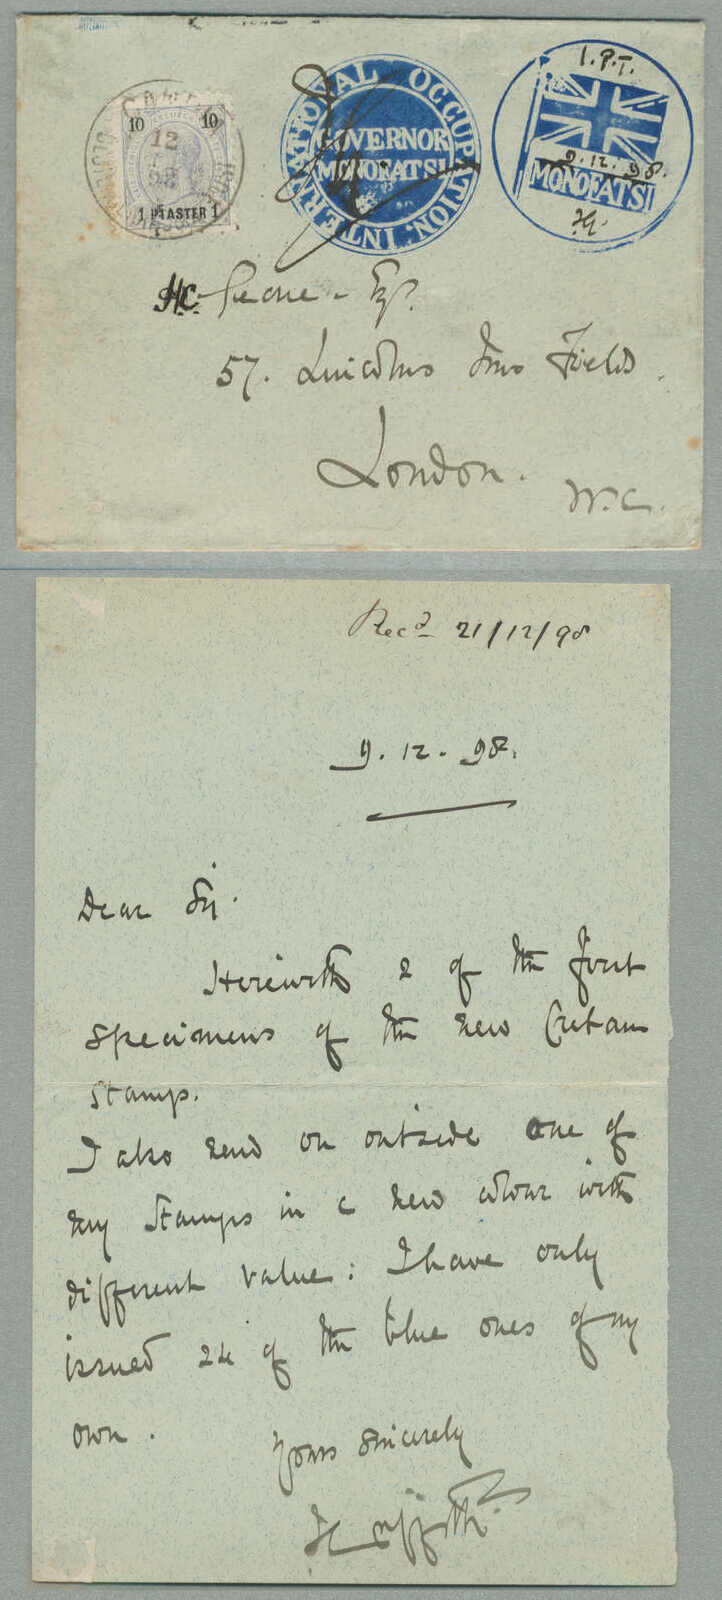 10 10
1 PIASTER 1
12
98
INTERNATIONAL OCCUPATION.
GOVERNOR
MONOFATSI
1.P.T.
9.12.98.
MONOFATSI
HG
57. Lincolns Inn Fields.
London.
W.C.
Recd 21/12/98
9.12.98.
Dear Sir.
Herewith 2 of the first
specimens of the new Cretan
stamp.
I also send on outside one of
my stamps in a new colour with
different value: I have only
issued 24 of the blue ones of my
own.
Yours sincerely